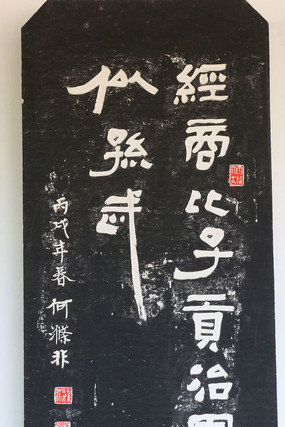 經商比子貢治國
似孫武
丙戌年春何滌非